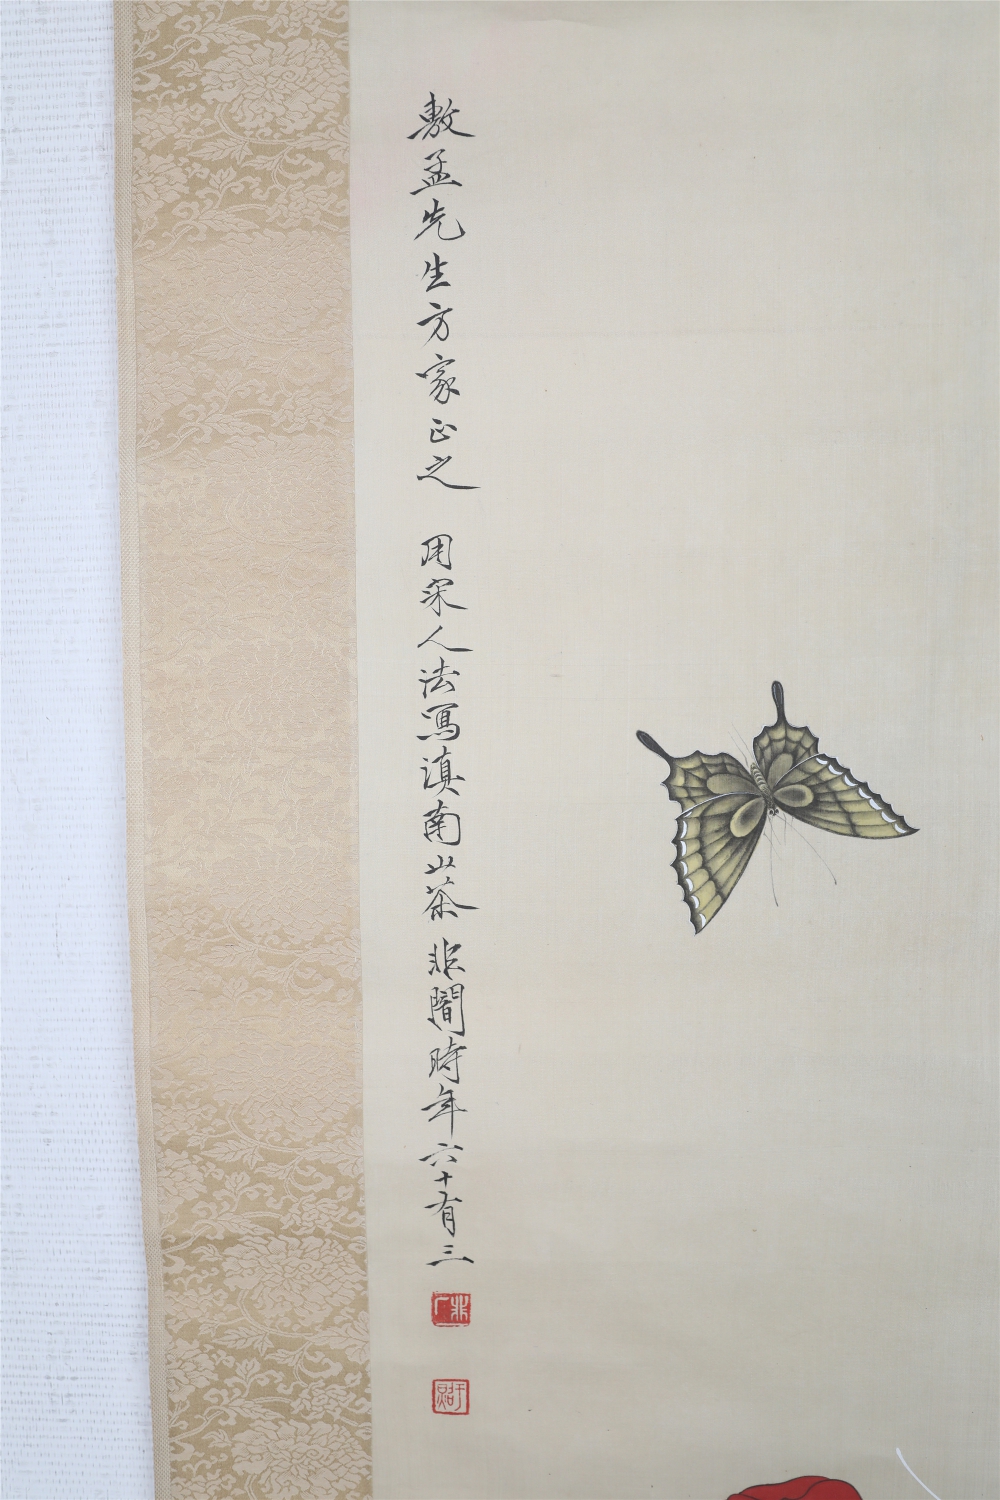 敷孟先生方家正之 用宋人法寫滇南山茶 非闇時年六十有三